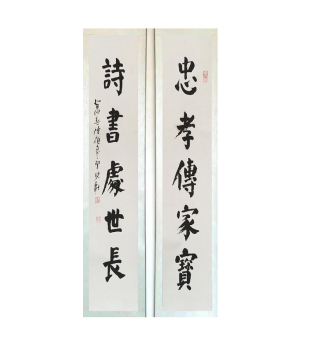 忠孝傳家寶
詩書處世長